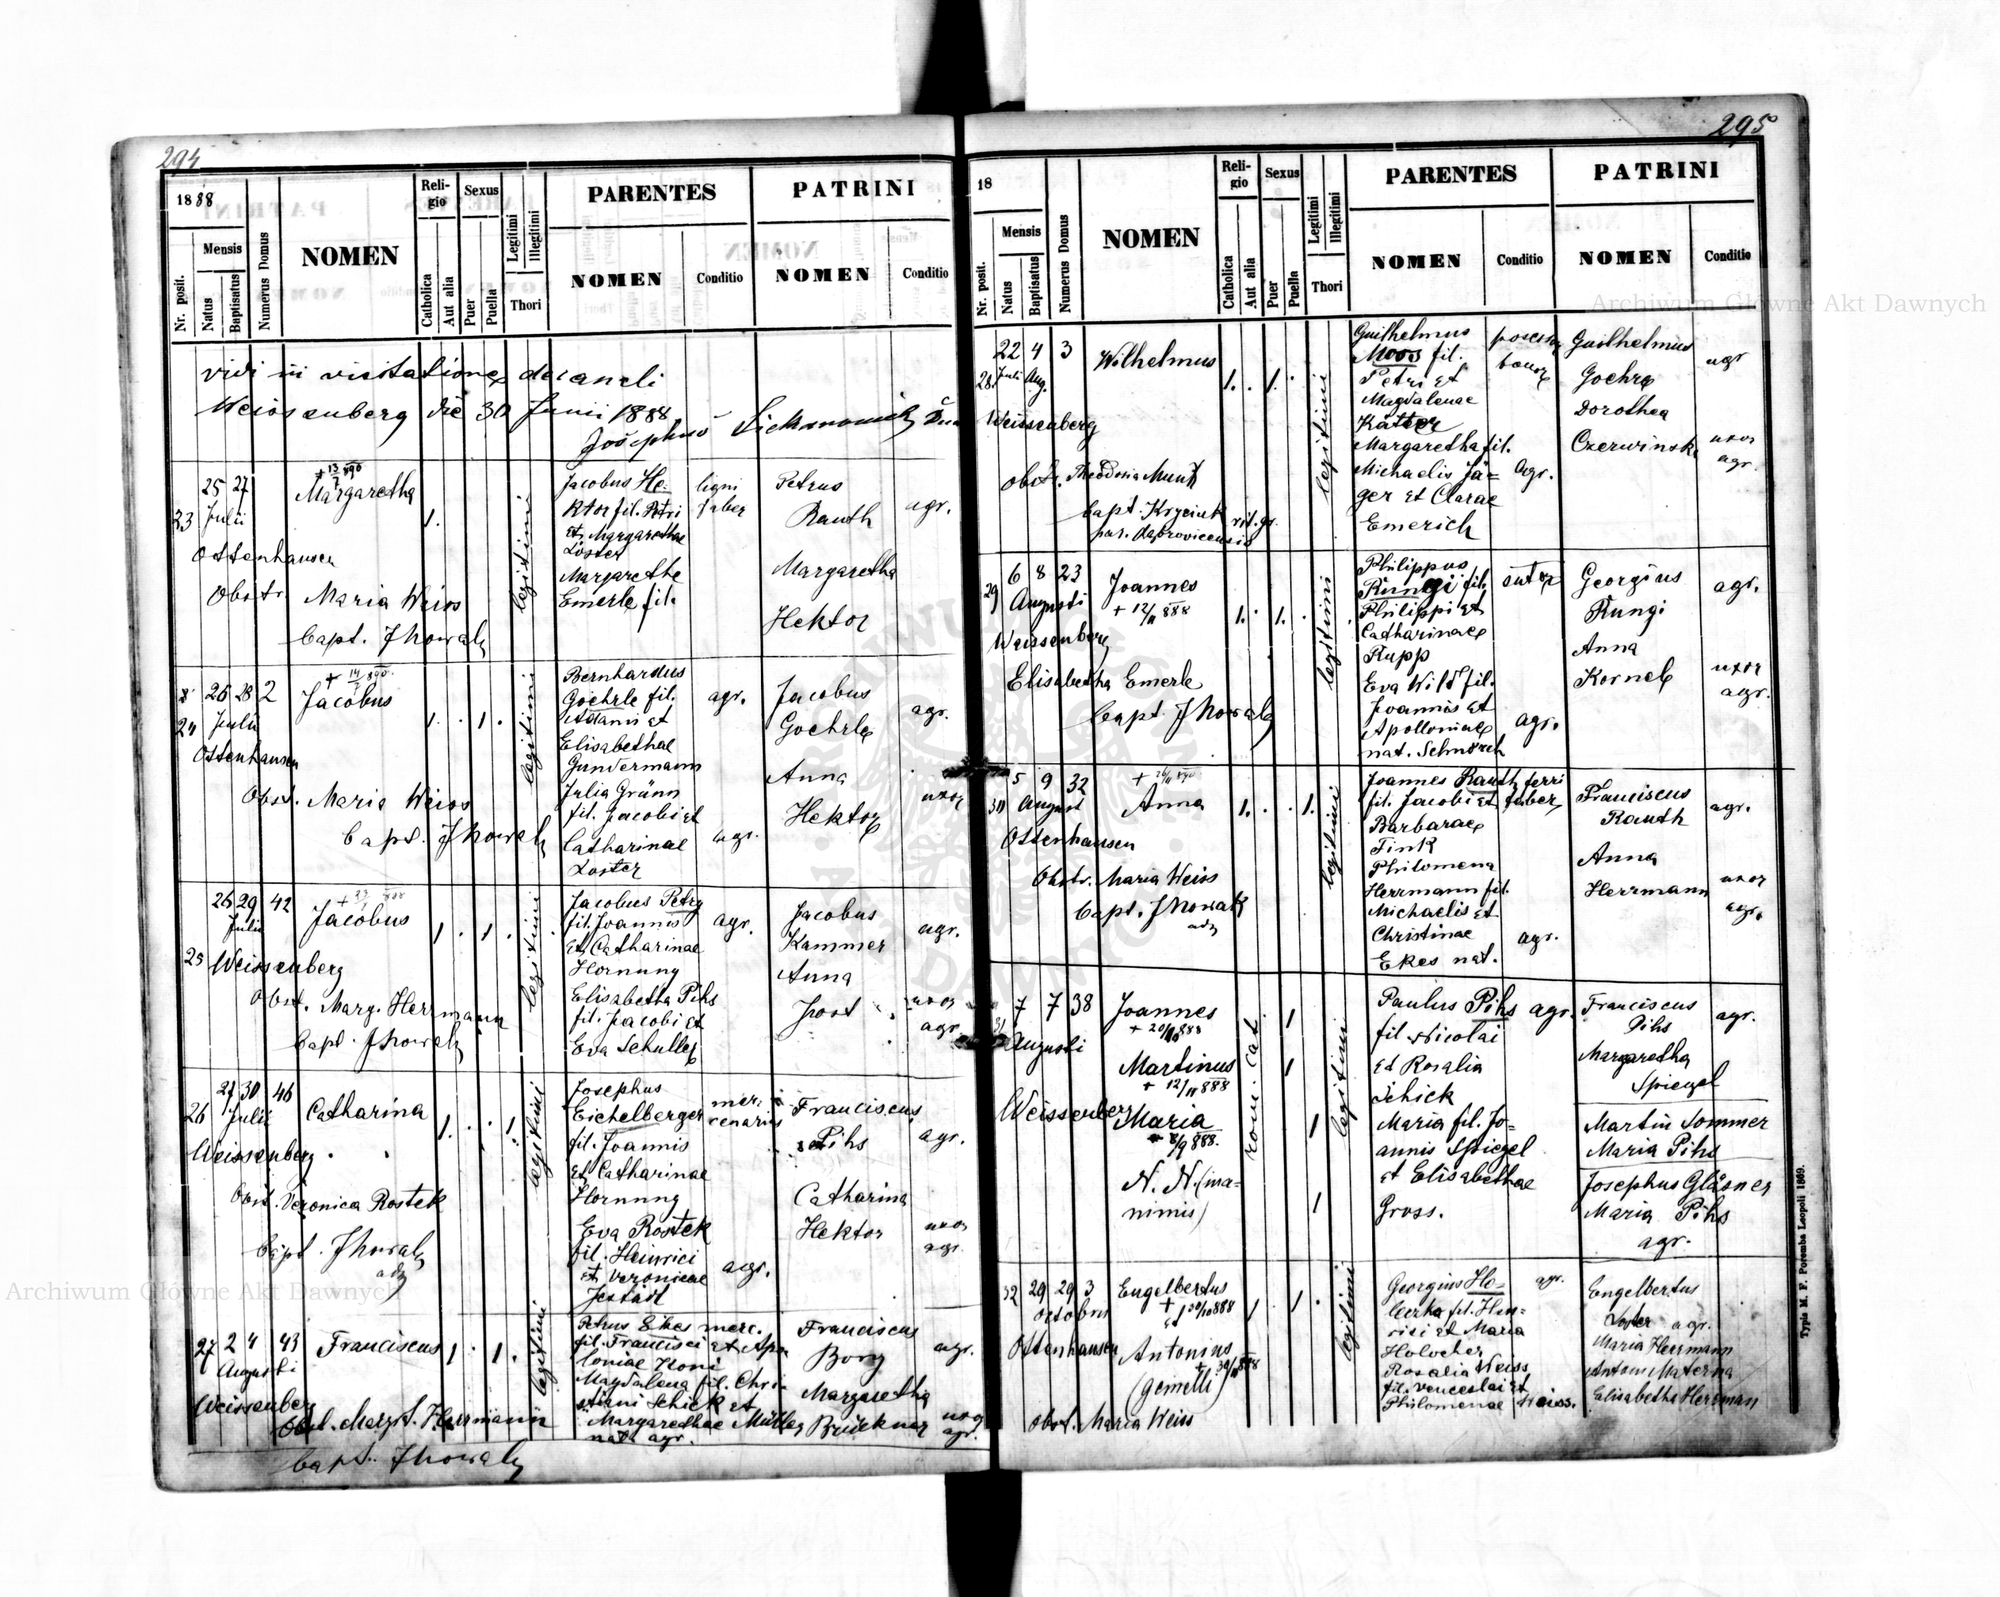 294
1888
Nr. posit.
Mensis
Natus
Baptisatus
Numerus Domus
NOMEN
Religio
Catholica
Aut alia
Sexus
Puer
Puella
Legitimi
Illegitimi
Thori
PARENTES
NOMEN
Conditio
PATRINI
NOMEN
Conditio
vidi in visitatione decanali
Weissenberg die 30 Junii 1888
Josephus
23
25 27
Julii
Ottenhausen
Obstr. Maria Weiss
Bapt. J Nowak
+ 13/7 890
Margaretha
1.
legitimi
Jacobus He-
ktor fil. Petri
et Margarethae
Koster
Margarethe
Emerle fil.
ligni
faber
Petrus
Rauth
Margaretha
Hektor
agr.
24
26 28 2
Julii
Ottenhausen
Obst. Maria Weiss
Bapt. J Nowak
+ 14/7 890
Jacobus
1. . 1.
legitimi
Bernhardus
Goehrle fil.
Adami et
Elisabethae
Gundermann
Julia Gränn
fil. Jacobi et
Catharinae
Koster
agr.
agr.
Jacobus
Goehrle
Anna
Hektor
agr.
uxor
25
26 29 42
Julii
Weissenberg
Obst. Marg. Herrmann
Bapt. J Nowak
Jacobus
1 . 1 .
legitimi
Jacobus Petry
fil. Joannis
et Catharinae
Hornung
Elisabetha Pihs
fil. Jacobi et
Eva Schuller
agr.
Jacobus
Kammer
Anna
Jost
agr.
uxor
agr.
26
27 30 46
Julii
Weissenberg
Obst. Veronica Rostek
Bapt. J Nowak
Catharina
1. . . 1.
legitimi
Josephus
Eichelberger
fil. Joannis
et Catharinae
Hornung
Eva Rostek
fil. Heinrici
et Veronicae
Jestadt
mer-
cenarius
agr.
Franciscus
Pihs
Catharina
Hektor
agr.
uxor
agr.
27
2 4 43
Augusti
Weissenberg
Obst. Margt. Herrmann
Bapt. J Nowak
Franciscus
1 . 1.
legitimi
Petrus Ekes merc.
fil. Francisci et Apo
loniae Honi
Magdalena fil. Chri-
stiani Schick et
Margarethae Müller
nata agr.
Franciscus
Borg
Margaretha
Brückner
agr.
uxor
agr.
295
18
Nr. posit.
Mensis
Natus
Baptisatus
Numerus Domus
NOMEN
Religio
Catholica
Aut alia
Sexus
Puer
Puella
Legitimi
Illegitimi
Thori
PARENTES
NOMEN
Conditio
PATRINI
NOMEN
Conditio
28
22 4 3
Juli Aug.
Weissenberg
Obstr. Theodosia Munt
Bapt. Kryciuk rit. gr.
par. dąbrovicensis
Wilhelmus
1. . 1. .
legitimi
Guilhelmus
Moos fil.
Petri et
Magdalenae
Katter
Margaretha fil.
Michaelis Jä-
ger et Clarae
Emerich
agr.
Guilhelmus
Goehre
Dorothea
Czerwinska
agr
uxor
agr.
29
6 8 23
Augusti
Weissenberg
Elisabetha Emerle
Bapt. J Nowak
Joannes
+ 12/11 888
1. . 1. .
legitimi
Philippus
Rungi fil.
Philippi et
Catharinae
Rupp
Eva Wild fil.
Joannis et
Apolloniae
nat. Schnörch
sutor
agr.
Georgius
Rungi
Anna
Kornel
agr.
uxor
agr.
30
5 9 32
August
Ottenhausen
Obstr. Maria Weiss
Bapt. J Nowak
Anna
1. . . 1.
legitimi
Joannes Rauth
fil. Jacobi et
Barbarae
Fink
Philomena
Herrmann fil.
Michaelis et
Christinae
Ekes nat.
ferri
faber
agr.
Franciscus
Rauth
Anna
Herrmann
agr.
uxor
agr.
31
7 7 38
Augusti
Weissenberg
Joannes
+ 20/11 888
Martinus
+ 12/11 888
Maria
+ 8/9 888.
N. N. (ina-
nimis)
rom. cat
1
1
1
1
legitimi
Paulus Pihs
fil. Nicolai
et Rosalia
Schick
Maria fil. Jo-
annis Spiegel
et Elisabethae
Gross.
agr.
Franciscus
Pihs
Margaretha
Spiegel
Martin Sommer
Maria Pihs
Josephus Gläsner
Maria Pihs
agr.
agr.
32
29 29 3
Octobris
Ottenhausen
Obst. Maria Weiss
Engelbertus
+ 30/10 888
et
Antonius
(gemelli)
1 . 1 .
legitimi
Georgius Ho-
fil. Hen-
rici et Maria
Holocher
Rosalia Weiss
fil. Venceslai et
Philomenae Weiss.
agr.
Engelbertus
Koster agr.
Maria Herrmann
Antoni Materna
Elisabetha Herrman
Typis M. F. Poremba Leopoli 1869.
Archiwum Główne Akt Dawnych
Archiwum Główne Akt Dawnych